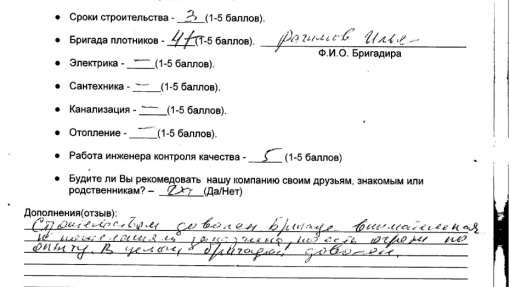 • Сроки строительства - 3 (1-5 баллов).
• Бригада плотников - 4+ (1-5 баллов). Рагимов Илья
Ф.И.О. Бригадира
• Электрика - — (1-5 баллов).
• Сантехника - — (1-5 баллов).
• Канализация - — (1-5 баллов).
• Отопление - — (1-5 баллов).
• Работа инженера контроля качества - 5 (1-5 баллов)
• Будите ли Вы рекомедовать нашу компанию своим друзьям, знакомым или
родственникам? – Да (Да/Нет)
Дополнения(отзыв):
Строительством доволен. Бригада внимательная
к пожеланиям заказчика, но есть огрехи по
опыту. В целом бригадой доволен.